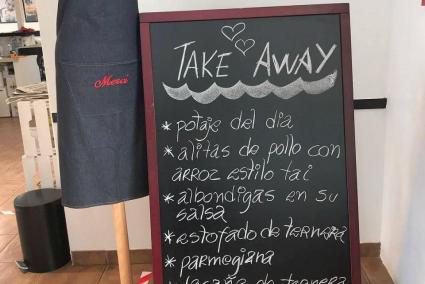 TAKE AWAY
Merci
* potaje del dia
* alitas de pollo con
arroz estilo tai
* albondigas en su
salsa
* estofado de ternera
* parmegiana
de ternera